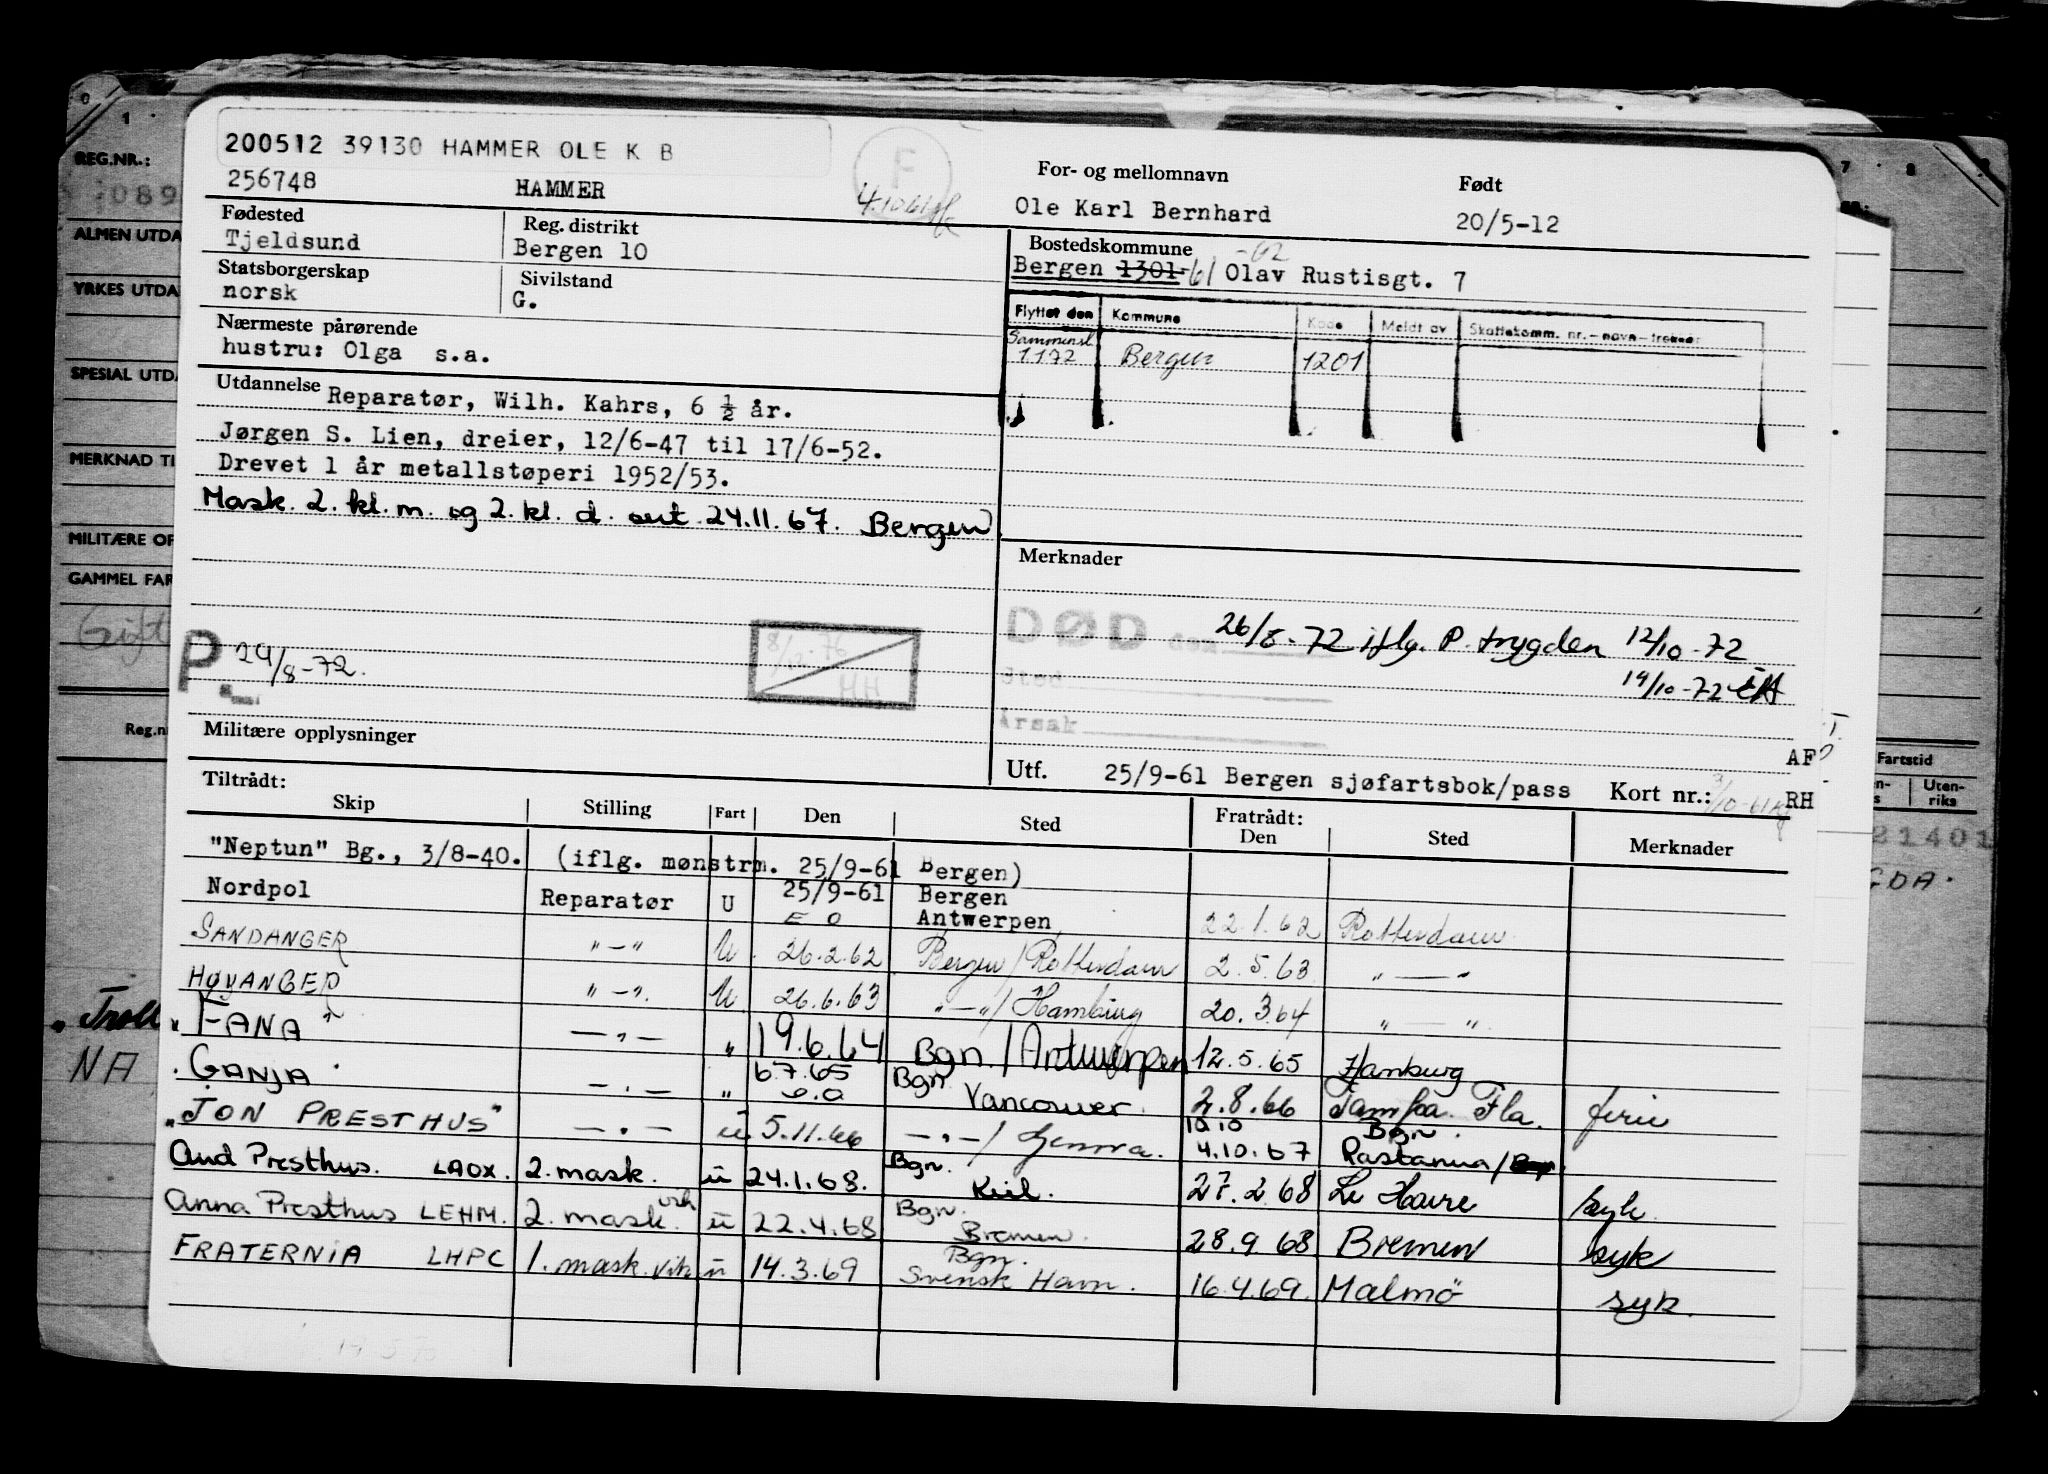 200512 39130 HAMMER OLE K B
256748 HAMMER
F
For- og mellomnavn
Ole Karl Bernhard
Født
20/5-12
Fødested
Tjeldsund
Reg. distrikt
Bergen 10
Bostedskommune
Bergen 1301-61 -62 Olav Rustisgt. 7
Statsborgerskap
norsk
Sivilstand
G.
Nærmeste pårørende
hustru: Olga s.a.
Flyttet den Kommune Kode Meldt av Skattekomm. nr. - navn - trekker
Sammensl
1.1.72 Bergen 1201
Utdannelse Reparatør, Wilh. Kahrs, 6 ½ år.
Jørgen S. Lien, dreier, 12/6-47 til 17/6-52.
Drevet 1 år metallstøperi 1952/53.
Mask. 2. kl. m. og 2. kl. d. sert. 24.11.67. Bergen
Merknader
DØD den 26/8-72 iflg. P. trygden 12/10-72
Sted 14/10-72
Årsak
P 24/8-72.
8/12-76
HH
Militære opplysninger
Utf. 25/9-61 Bergen sjøfartsbok/pass Kort nr.:
AF
RH
Tiltrådt:
Skip Stilling Fart Den Sted
Fratrådt:
Den Sted Merknader
"Neptun" Bg., 3/8-40. (iflg. mønstrm. 25/9-61 Bergen)
Nordpol Reparatør U 25/9-61 Bergen
E O Antwerpen 22.1.62 Rotterdam
SANDANGER "-" U 26.2.62 Bergen/Rotterdam 2.5.63 "-"
HØYANGER "-" U 26.6.63 "-"/Hamburg 20.3.64 "-"
"FANA" -"- " 19.6.64 Bgn./Antwerpen 12.5.65 Hamburg
"GANJA" -"- " 6.7.65 Bgn.
e.o Vancouver. 2.8.66 Tampa. Fla. ferie
"JON PRESTHUS" -"- u 5.11.66 -"-/Genova. 4.10.67
10.10 Bgn.
Aud Presthus. LAOX. 2. mask. u 24.1.68. Bgn.
Kiel. 27.2.68 Le Havre syk.
Anna Presthus LEHM. 2. mask. vik u 22.4.68 Bgn.
Bremen. 28.9.68 Bremen syk
FRATERNIA LHPC 1. mask. vik u 14.3.69 Bgn.
Svensk Havn. 16.4.69. Malmö syk.
REG.NR.:
089
ALMEN UTDA
YRKES UTDA
SPESIAL UTDA
MERKNAD TI
MILITÆRE OP
GAMMEL FAR
Gift
Reg.n
NA
Fartstid
Uten-
riks
21401